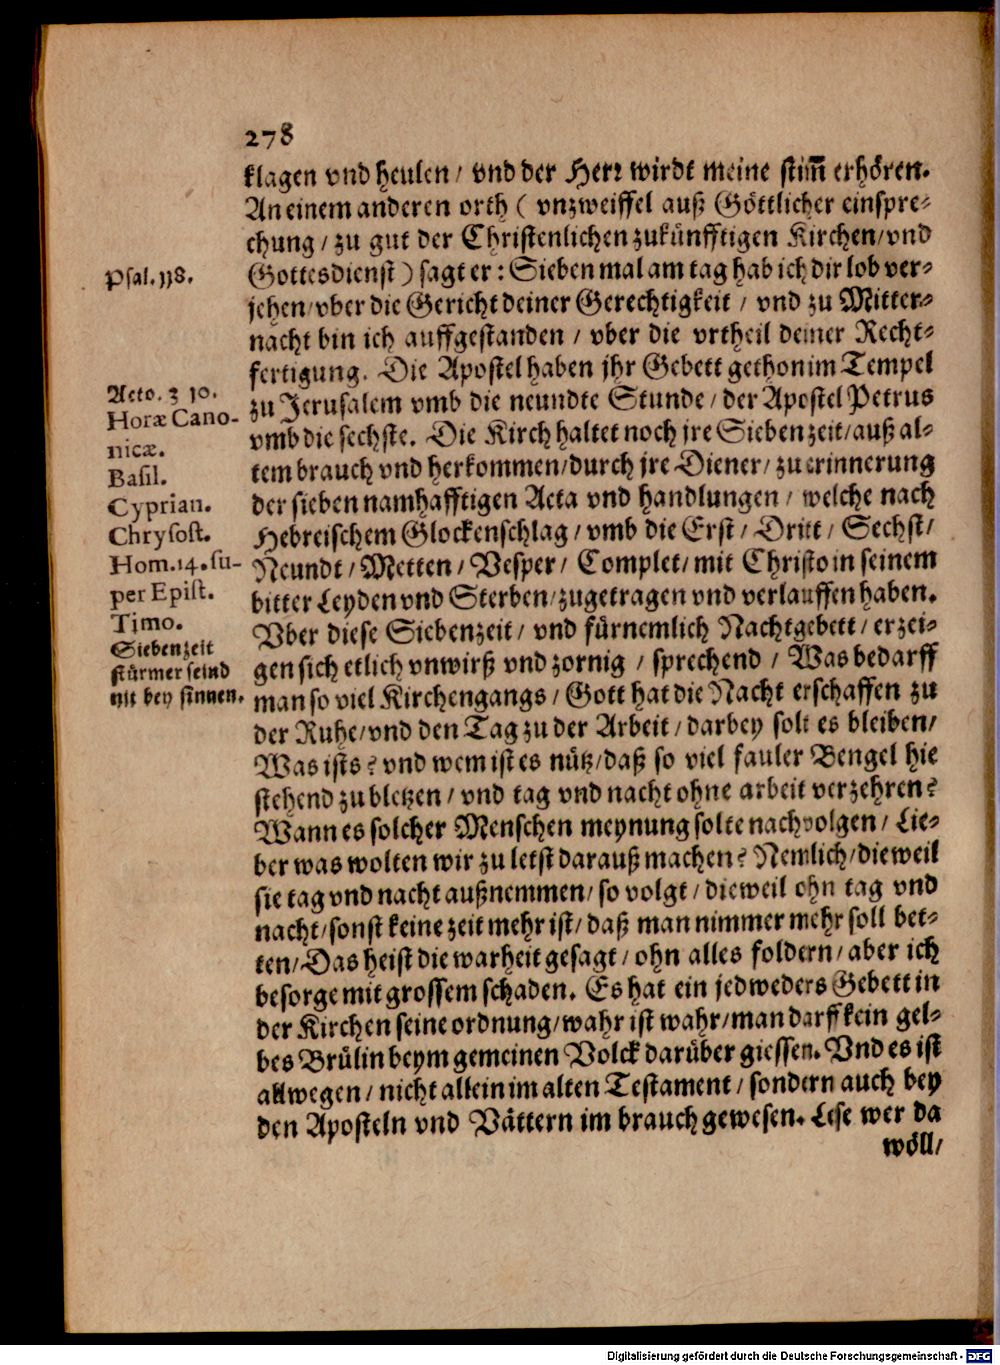 278
klagen vnd heulen / vnd der Herr wirdt meine stim̃ erhören.
An einem anderen orth ( vnzweiffel auß Göttlicher einspre-
chung / zu gut der Christenlichen zukünfftigen Kirchen / vnd
Psal. 118.
Gottesdienst ) sagt er : Sieben mal am tag hab ich dir lob ver-
jehen / vber die Gericht deiner Gerechtigkeit / vnd zu Mitter-
nacht bin ich auffgestanden / vber die vrtheil deiner Recht-
fertigung. Die Apostel haben jhr Gebett gethon im Tempel
Acto. 3 10.
zu Jerusalem vmb die neundte Stunde / der Apostel Petrus
Horæ Cano-
nicæ.
vmb die sechste. Die Kirch haltet noch jre Sieben zeit / auß al-
tem brauch vnd herkommen / durch jre Diener / zu erinnerung
Basil.
Cyprian.
der sieben namhafftigen Acta vnd handlungen / welche nach
Chrysost.
Hebreischem Glockenschlag / vmb die Erst / Dritt / Sechst /
Hom. 14. su-
per Epist.
Neundt / Metten / Vesper / Complet / mit Christo in seinem
bitter Leyden vnd Sterben / zugetragen vnd verlauffen haben.
Timo.
Vber diese Siebenzeit / vnd fürnemlich Nachtgebett / erzei-
Siebenzeit
stürmer seind
nit bey sinnen.
gen sich etlich vnwirß vnd zornig / sprechend / Was bedarff
man so viel Kirchengangs / Gott hat die Nacht erschaffen zu
der Ruhe / vnd den Tag zu der Arbeit / darbey solt es bleiben /
Was ists ? vnd wem ist es nütz / daß so viel fauler Bengel hie
stehend zu bletzen / vnd tag vnd nacht ohne arbeit verzehren ?
Wann es solcher Menschen meynung solte nachvolgen / Lie-
ber was wolten wir zu letst darauß machen ? Nemlich / dieweil
sie tag vnd nacht außnemmen / so volgt / dieweil ohn tag vnd
nacht / sonst keine zeit mehr ist / daß man nimmer mehr soll bet-
ten / Das heist die warheit gesagt / ohn alles foldern / aber ich
besorge mit grossem schaden. Es hat ein jedweders Gebett in
der Kirchen seine ordnung / wahr ist wahr / man darff kein gel-
bes Brülin beym gemeinen Volck darüber giessen. Vnd es ist
allwegen / nicht allein im alten Testament / sondern auch bey
den Aposteln vnd Vättern im brauch gewesen. Lese wer da
wöll /
Digitalisierung gefördert durch die Deutsche Forschungsgemeinschaft - DFG